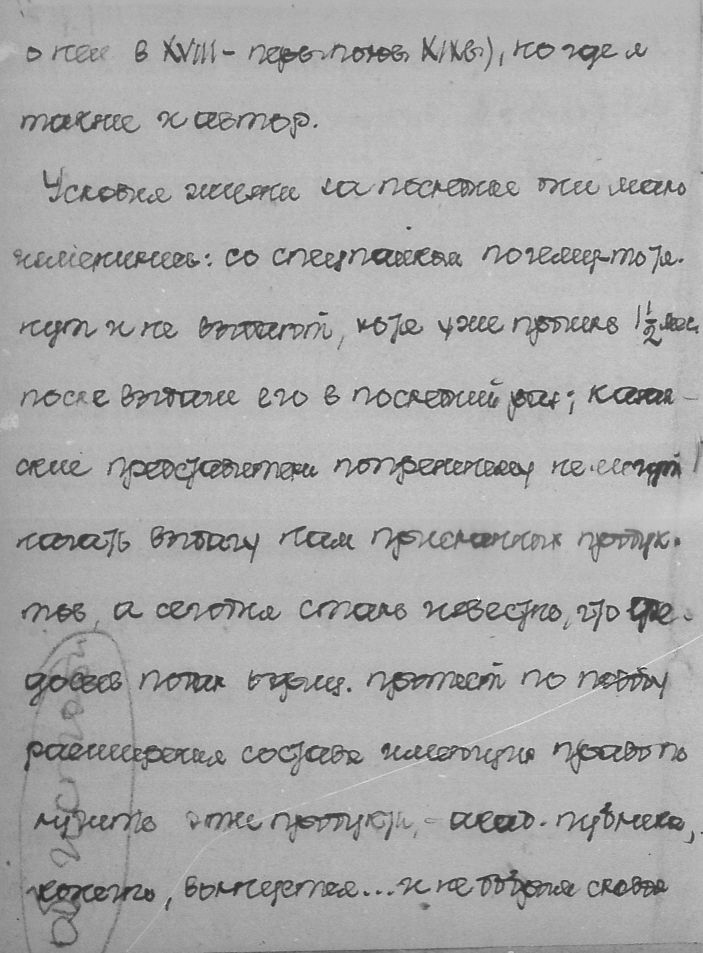 о ней в XVIII - перв. полов. XIX в.), но где я
также и автор.
Условия жизни за последние дни мало
изменились: со спецпайком почему-то тя-
нут и не выдают, хотя уже прошло 1 1/2 мес.
после выдачи его в последний раз; казан-
ские представители попрежнему не могут
начать выдачу нам присланных продук-
тов, а сегодня стало известно, что
подал протест по поводу
расширения состава имеющих право по
лучить эти продукты, - акад. публика,
конечно, волнуется... и не